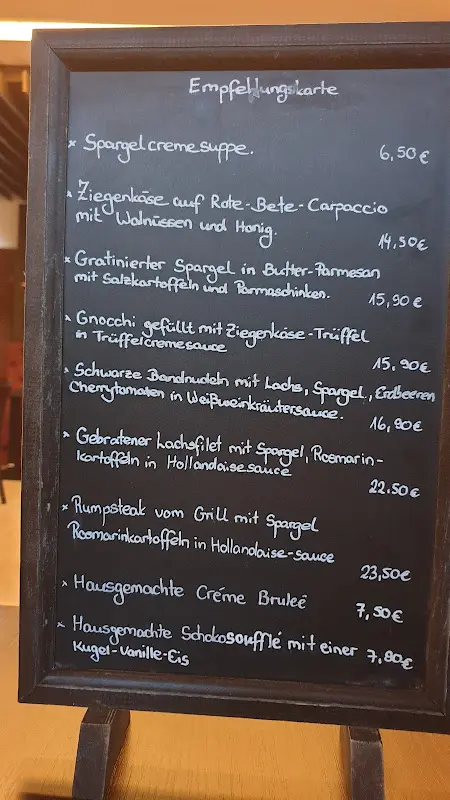 Empfehlungskarte
× Spargelcremesuppe. 6,50 €
× Ziegenkäse auf Rote-Bete-Carpaccio
mit Walnüssen und Honig.
14,50 €
× Gratinierter Spargel in Butter-Parmesan
mit Salzkartoffeln und Parmaschinken. 15,90 €
× Gnocchi gefüllt mit Ziegenkäse-Trüffel
in Trüffelcremesauce
15,90 €
× Schwarze Bandnudeln mit Lachs, Spargel, Erdbeeren
Cherrytomaten in Weißweinkräutersauce. 16,90 €
× Gebratener Lachsfilet mit Spargel, Rosmarin-
kartoffeln in Hollandaisesauce
22.50 €
× Rumpsteak vom Grill mit Spargel
Rosmarinkartoffeln in Hollandaise-sauce
23,50 €
× Hausgemachte Créme Bruleé 7,50 €
× Hausgemachte Schokosoufflé mit einer 7,80 €
Kugel-Vanille-Eis